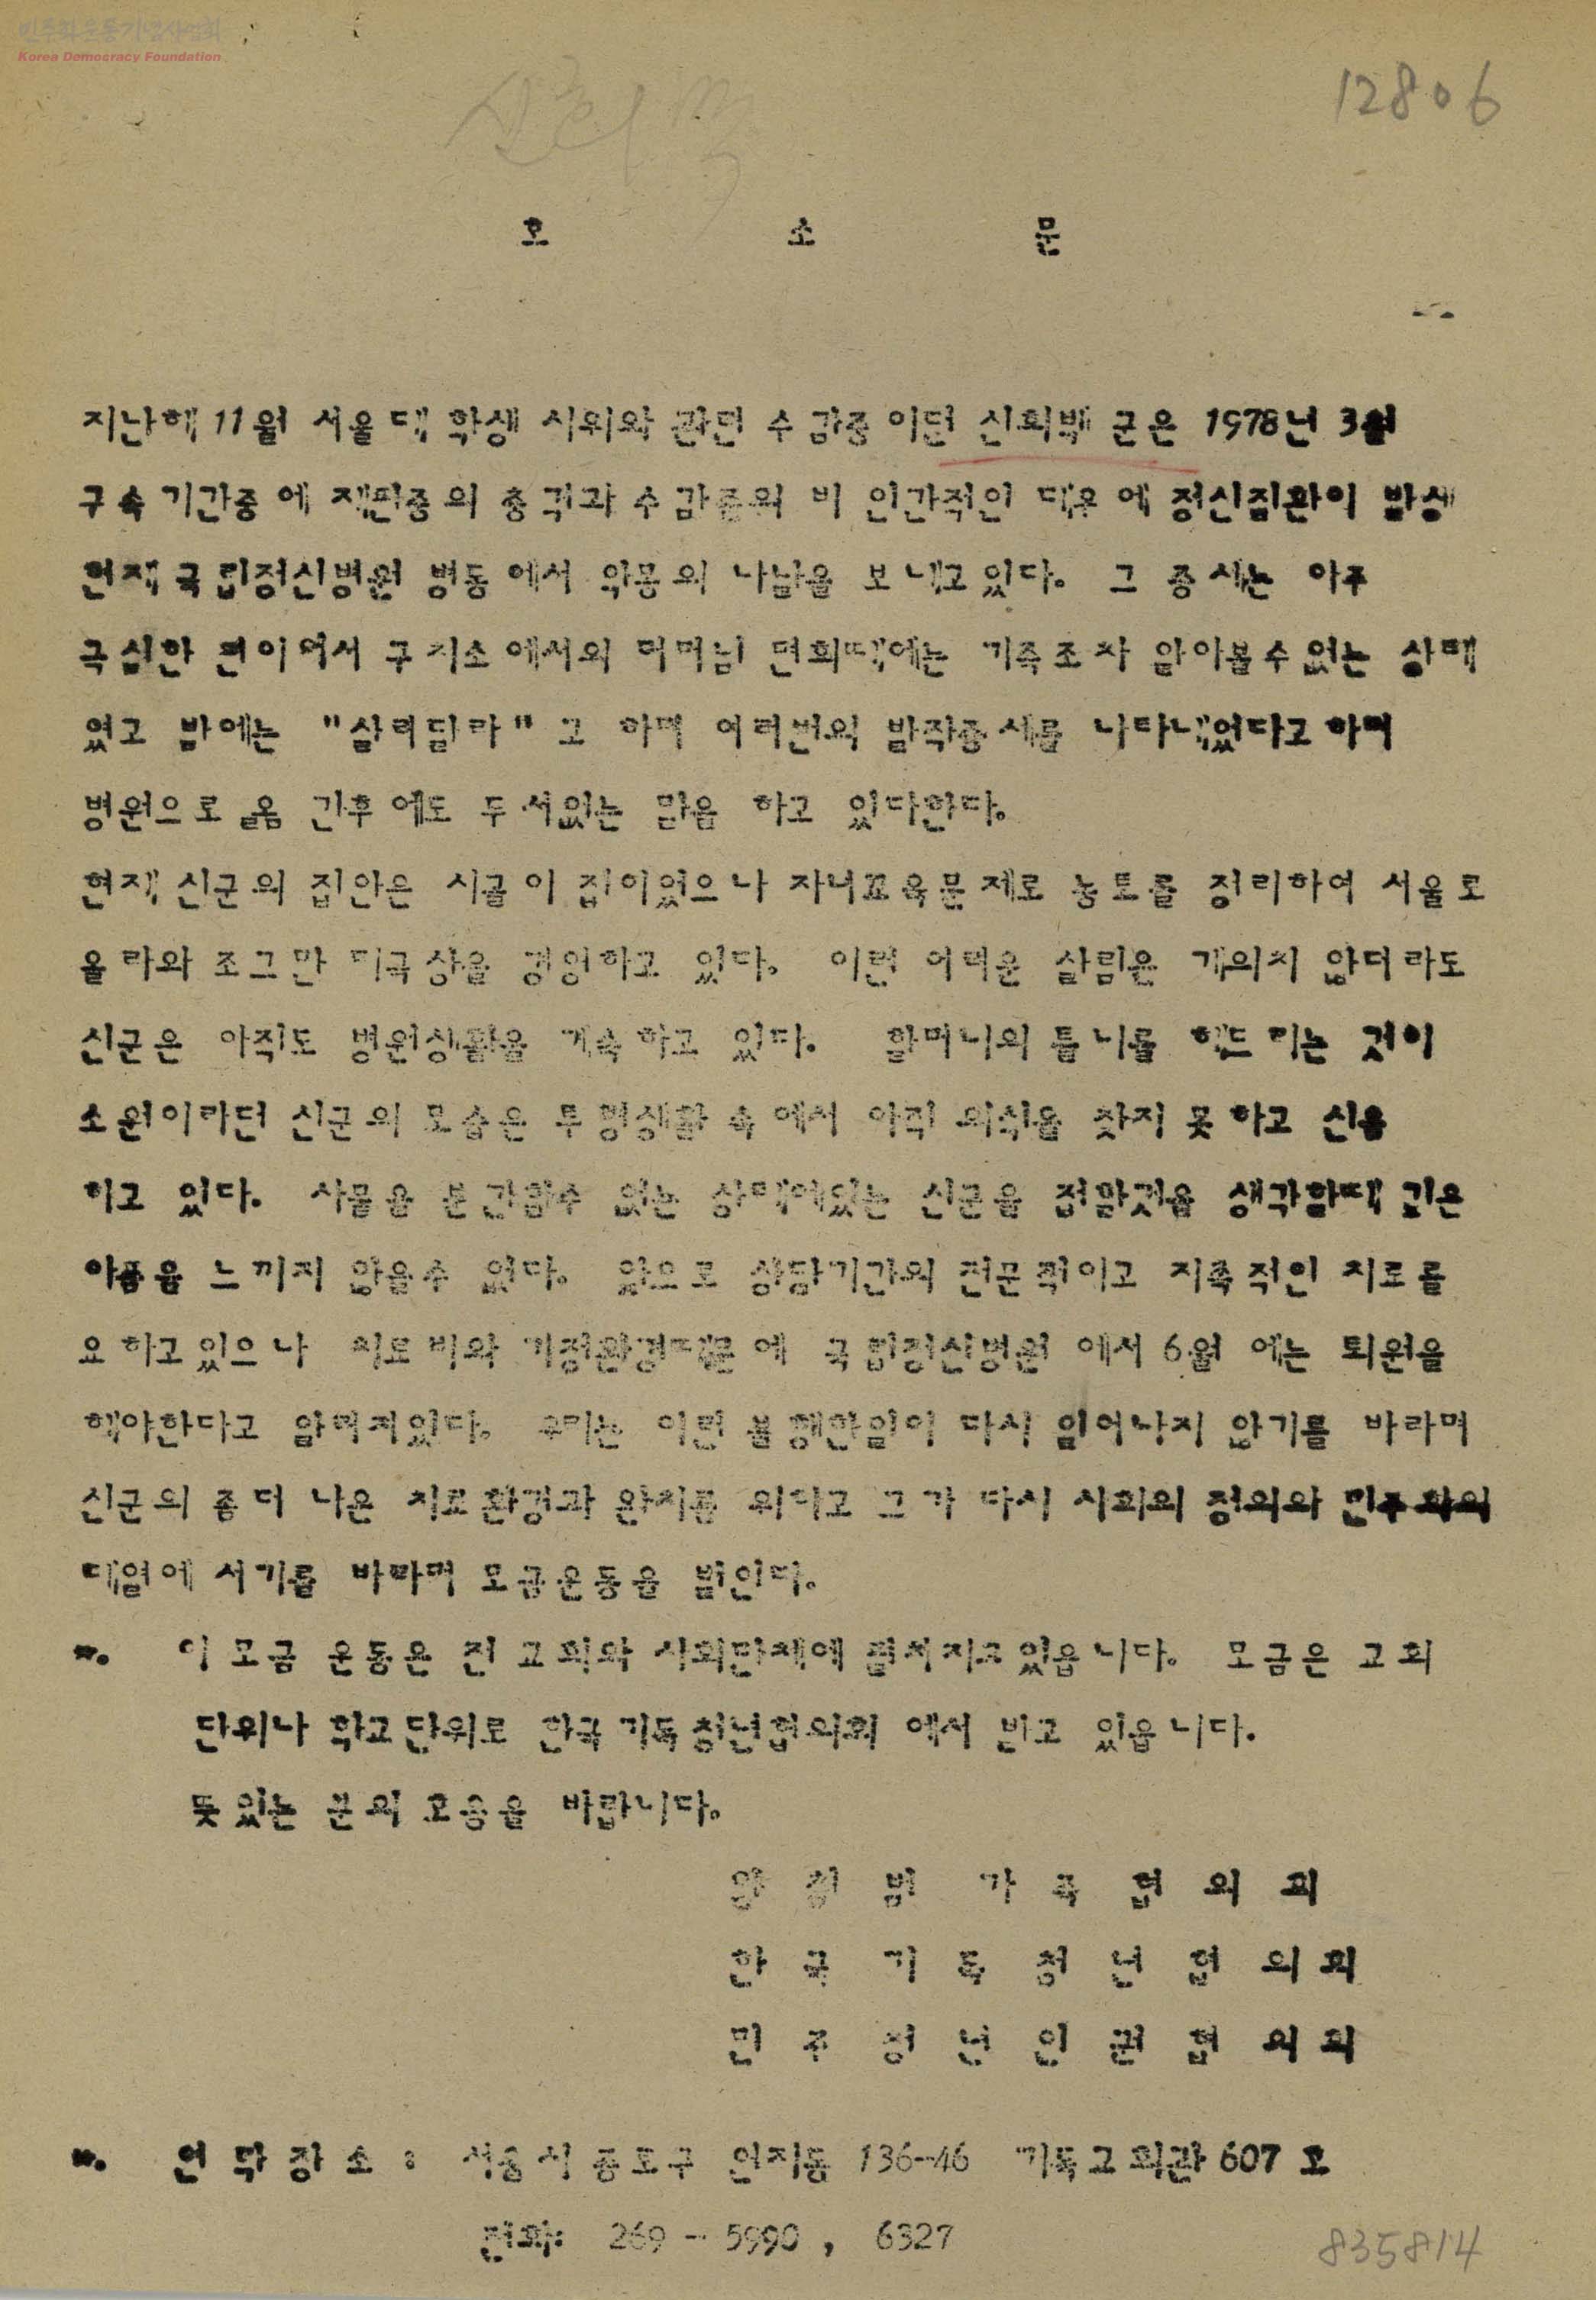 민주화운동기념사업회
Korea Democracy Foundation
12806
호 소 문
지난해 11월 서울대 학생 시위와 관련 수감중이던 신희백 군은 1978년 3월
구속 기간중에 재판중의 충격과 수감중의 비 인간적인 대우에 정신질환이 발생
현재 국립정신병원 병동에서 악몽의 나날을 보내고있다. 그 증세는 아주
극심한 편이여서 구치소에서의 어머님 면회때에는 가족조차 알아볼수없는 상태
었고 밤에는 "살려달라" 고 하며 여러번의 발작증세를 나타내었다고하며
병원으로 옮 긴후에도 두서없는 말을 하고 있다한다.
현재 신군의 집안은 시골이 집이었으나 자녀교육문제로 농토를 정리하여 서울로
올라와 조그만 미곡상을 경영하고 있다. 이런 어려운 살림은 개의치 않더라도
신군은 아직도 병원생활을 계속하고 있다. 할머니의 틀니를 해드리는 것이
소원이라던 신군의 모습은 투병생활 속에서 아직 의식을 찾지 못하고 신음
하고 있다. 사물을 분간할수 없는 상태에있는 신군을 접할것을 생각할때 깊은
아픔을 느끼지 않을수 없다. 앞으로 상당기간의 전문적이고 지속적인 치료를
요하고있으나 치료비와 가정환경때문에 국립정신병원에서 6월에는 퇴원을
해야한다고 알려져있다. 우리는 이런 불행한일이 다시 일어나지 않기를 바라며
신군의 좀더 나은 치료환경과 완치를 위하고 그가 다시 사회의 정의와 민주화의
대열에 서기를 바라며 모금운동을 벌인다.
※. 이 모금 운동은 전 교회와 사회단체에 펼쳐지고있읍니다. 모금은 교회
단위나 학교단위로 한국기독청년협의회에서 받고 있읍니다.
뜻있는 분의 호응을 바랍니다.
양 심 범 가 족 협 의 회
한 국 기 독 청 년 협 의 회
민 주 청 년 인 권 협 의 회
※. 연 락 장 소 : 서울시 종로구 연지동 136-46 기독교회관 607 호
전화: 269 - 5990 , 6327
835814